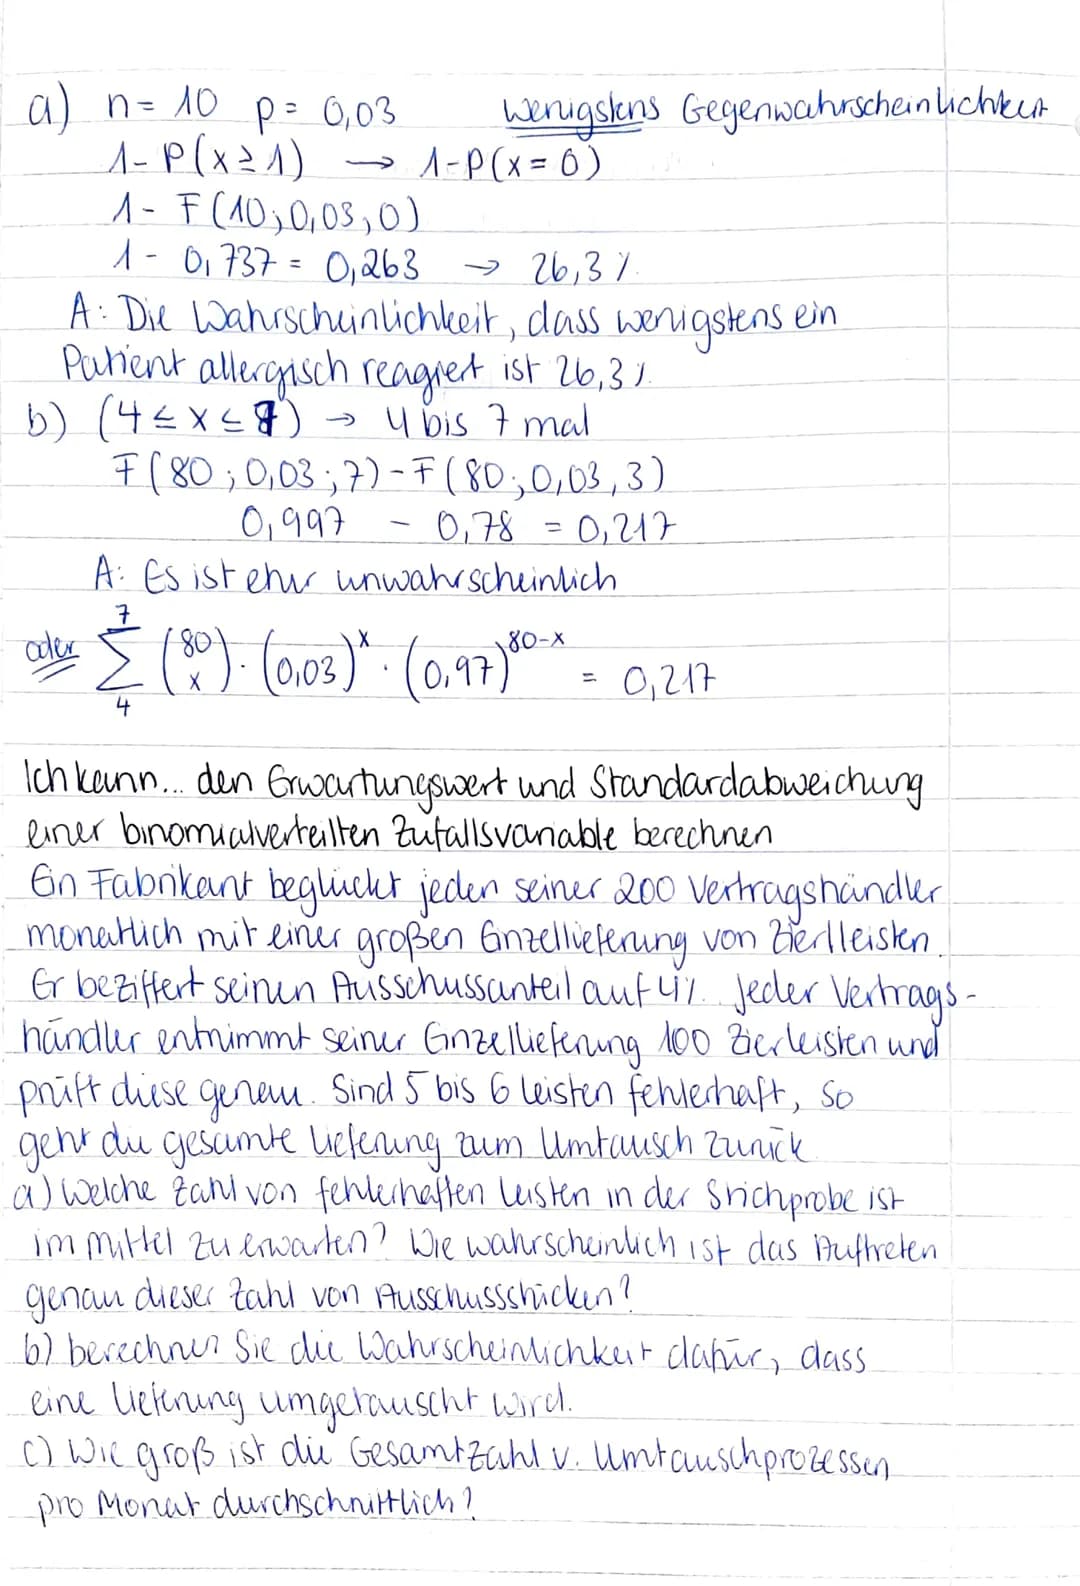 a) n = 10 p = 0,03 wenigstens Gegenwahrscheinlichkeit
1 - P(x ≥ 1) → 1 - P(x = 0)
1 - F(10; 0,03, 0)
1 - 0,737 = 0,263 → 26,3%
A: Die Wahrscheinlichkeit, dass wenigstens ein
Patient allergisch reagiert ist 26,3%.
b) (4 ≤ x ≤ 7) → 4 bis 7 mal
F(80; 0,03; 7) - F(80; 0,03, 3)
0,997 - 0,78 = 0,217
A: Es ist eher unwahrscheinlich
oder ∑_4^7 (80 x) · (0,03)^x · (0,97)^80-x = 0,217
Ich kann... den Erwartungswert und Standardabweichung
einer binomialverteilten Zufallsvariable berechnen
Ein Fabrikant beglückt jeden seiner 200 Vertragshändler
monatlich mit einer großen Einzellieferung von Zierlleisten.
Er beziffert seinen Ausschussanteil auf 4%. Jeder Vertrags-
händler entnimmt seiner Einzellieferung 100 Zierleisten und
prüft diese genau. Sind 5 bis 6 Leisten fehlerhaft, so
geht die gesamte Lieferung zum Umtausch zurück
a) Welche Zahl von fehlerhaften Leisten in der Stichprobe ist
im mittel zu erwarten? Wie wahrscheinlich ist das Auftreten
genau dieser Zahl von Ausschussstücken?
b) berechnen Sie die Wahrscheinlichkeit dafür, dass
eine Lieferung umgetauscht wird.
c) Wie groß ist die Gesamtzahl v. Umtauschprozessen
pro Monat durchschnittlich?